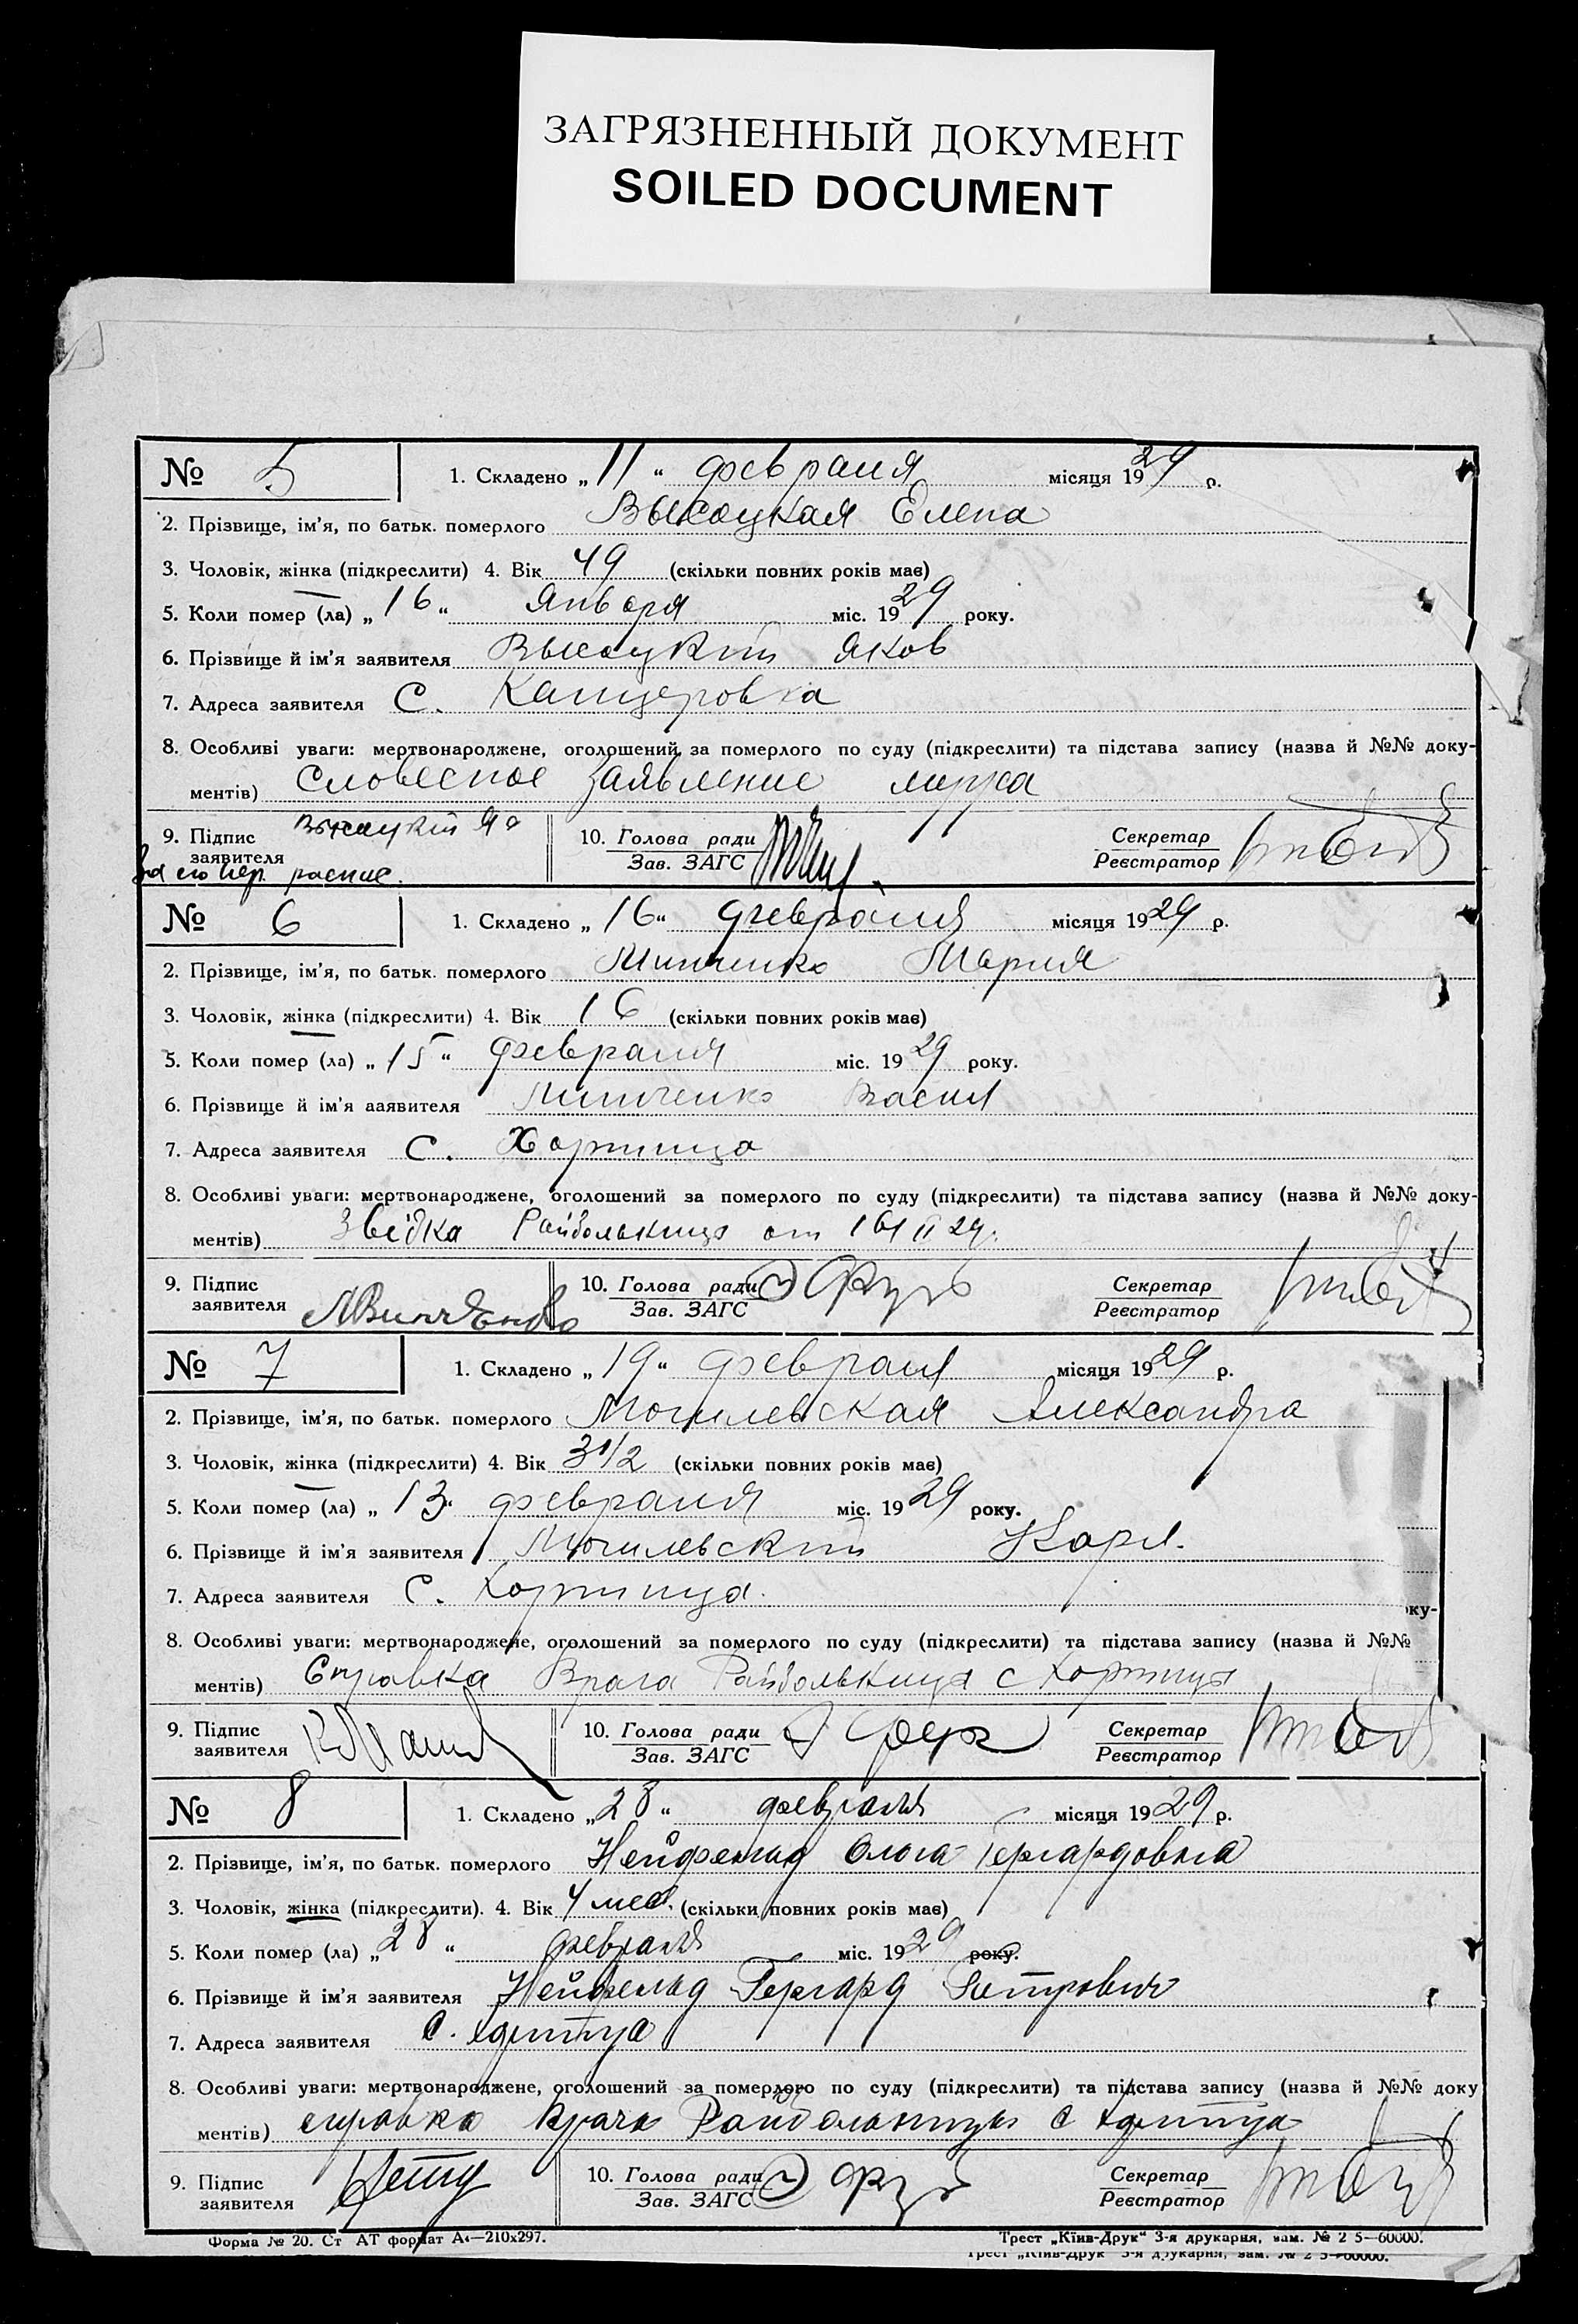 ЗАГРЯЗНЕННЫЙ ДОКУМЕНТ
SOILED DOCUMENT
№ 5 1. Складено „11“ февраля місяця 1929 р.
2. Прізвище, ім’я, по батьк. померлого Высоцкая Елена
3. Чоловік, жінка (підкреслити) 4. Вік 49 (скільки повних років має)
5. Коли помер (ла) „16“ Января міс. 1929 року.
6. Прізвище й ім’я заявителя Высоцкий Яков
7. Адреса заявителя С. Канцеровка
8. Особливі уваги: мертвонароджене, оголошений за померлого по суду (підкреслити) та підстава запису (назва й №№ доку-
ментів) Словесное заявление мужа
9. Підпис Высоцкий Як 10. Голова ради Секретар
заявителя Зав. ЗАГС Реєстратор
За его нер. распис.
№ 6 1. Складено „16“ февраля місяця 1929 р.
2. Прізвище, ім’я, по батьк. померлого Минченко Мария
3. Чоловік, жінка (підкреслити) 4. Вік 16 (скільки повних років має)
5. Коли помер (ла) „15“ февраля міс. 1929 року.
6. Прізвище й ім’я ааявителя Минченко Васил
7. Адреса заявителя С. Хортица
8. Особливі уваги: мертвонароджене, оголошений за померлого по суду (підкреслити) та підстава запису (назва й №№ доку-
ментів) Звідка Райбольница от 16/II 29.
9. Підпис 10. Голова ради Секретар
заявителя Зав. ЗАГС Реєстратор
№ 7 1. Складено „19“ февраля місяця 1929 р.
2. Прізвище, ім’я, по батьк. померлого Могилевская Александра
3. Чоловік, жінка (підкреслити) 4. Вік 3 1/2 (скільки повних років має)
5. Коли помер (ла) „13“ февраля міс. 1929 року.
6. Прізвище й ім’я заявителя Могилевский Карл.
7. Адреса заявителя С. Хортица.
ку-
8. Особливі уваги: мертвонароджене, оголошений за померлого по суду (підкреслити) та підстава запису (назва й №№
ментів) Справка Врача Райбольница с Хортица
9. Підпис 10. Голова ради Секретар
заявителя Зав. ЗАГС Реєстратор
№ 8 1. Складено „28“ февраля місяця 1929 р.
2. Прізвище, ім’я, по батьк. померлого Нейфельд Ольга Гергардовна
3. Чоловік, жінка (підкреслити). 4. Вік 4 мес. (скільки повних років має)
5. Коли помер (ла) „28“ февраля міс. 1929 року.
6. Прізвище й ім’я заявителя Нейфельд Гергард Петрович
7. Адреса заявителя С. Хортица
8. Особливі уваги: мертвонароджене, оголошений за померлого по суду (підкреслити) та підстава запису (назва й №№ доку
ментів) справка врача Райбольницы с Хортица
9. Підпис 10. Голова ради Секретар
заявителя Зав. ЗАГС Реєстратор
Форма № 20. Ст АТ формат А4—210x297. Трест „Київ-Друк“ 3-я друкарня, зам. № 2 5—60000.
Трест „Київ-Друк“ 3-я друкарня, зам. № 2 5—60000.